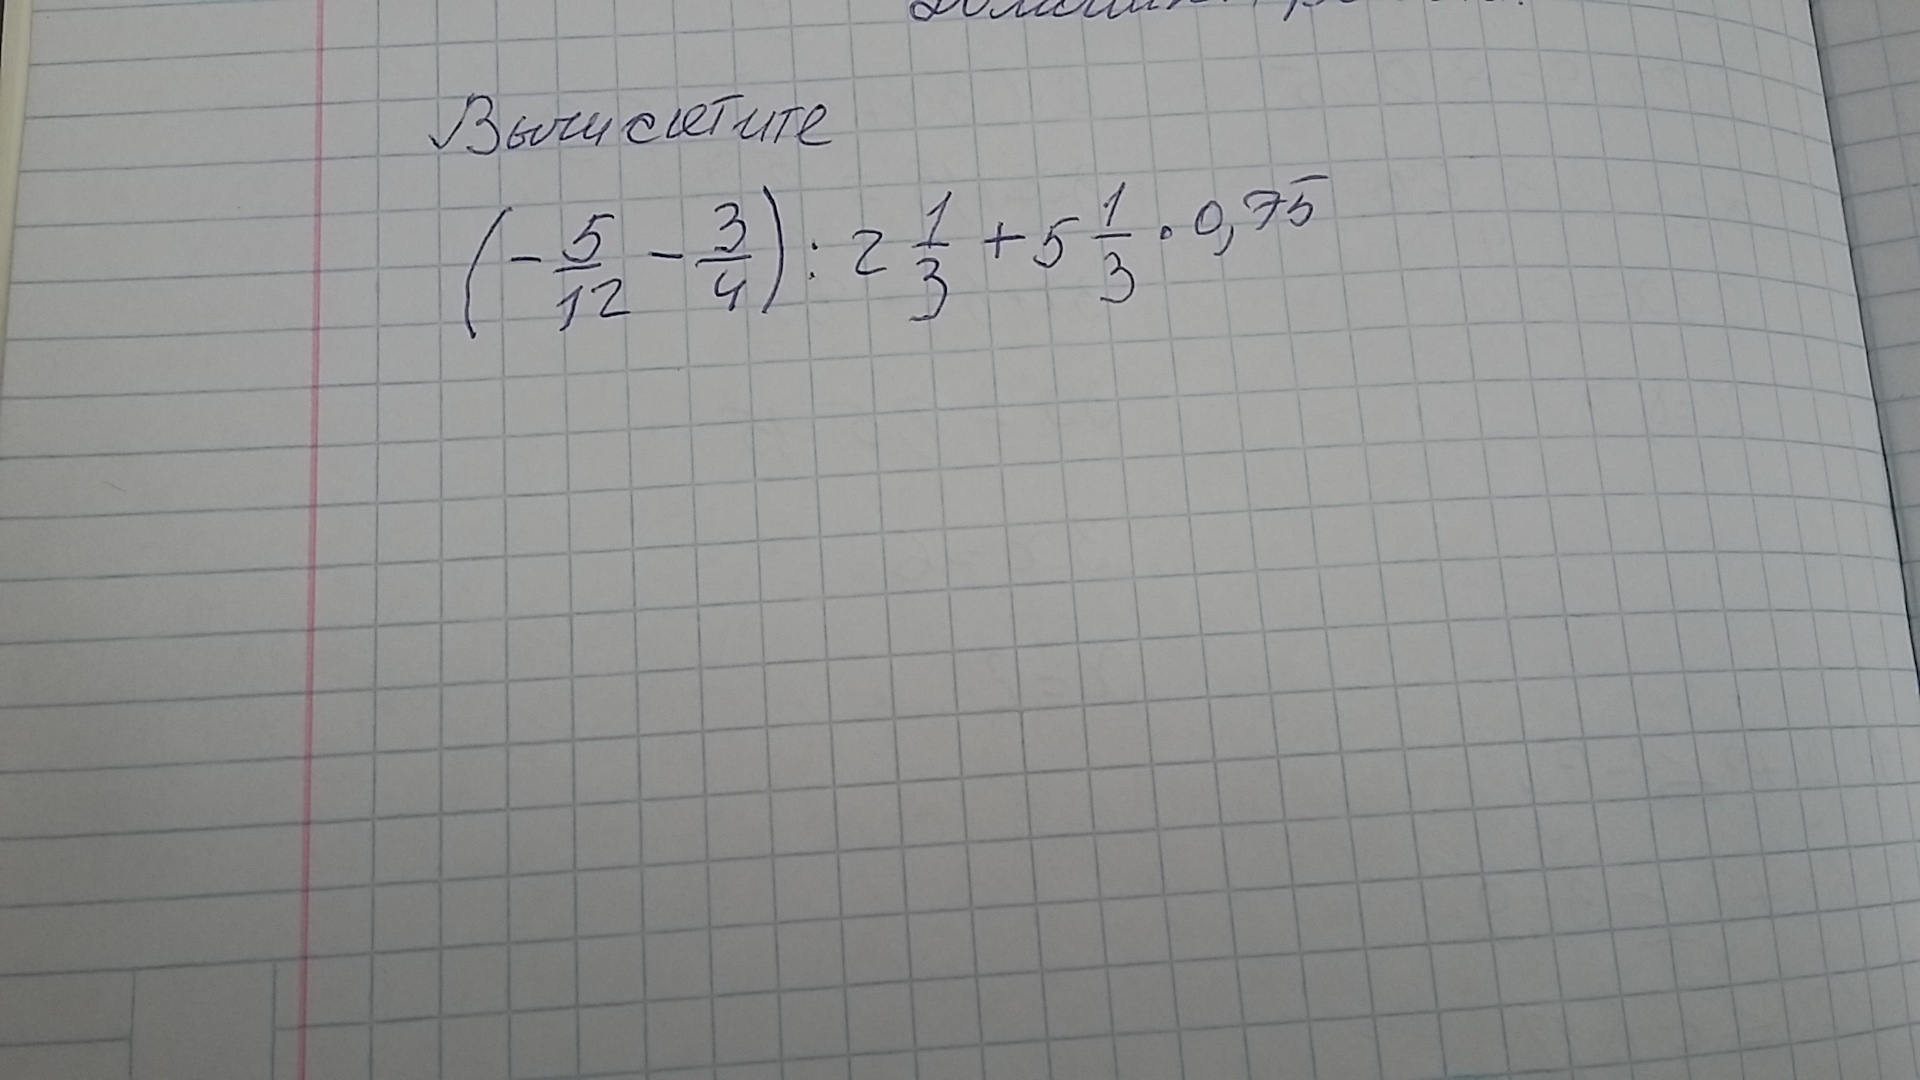 Вычислите
(- 5/12 - 3/4) : 2 1/3 + 5 1/3 · 0,75